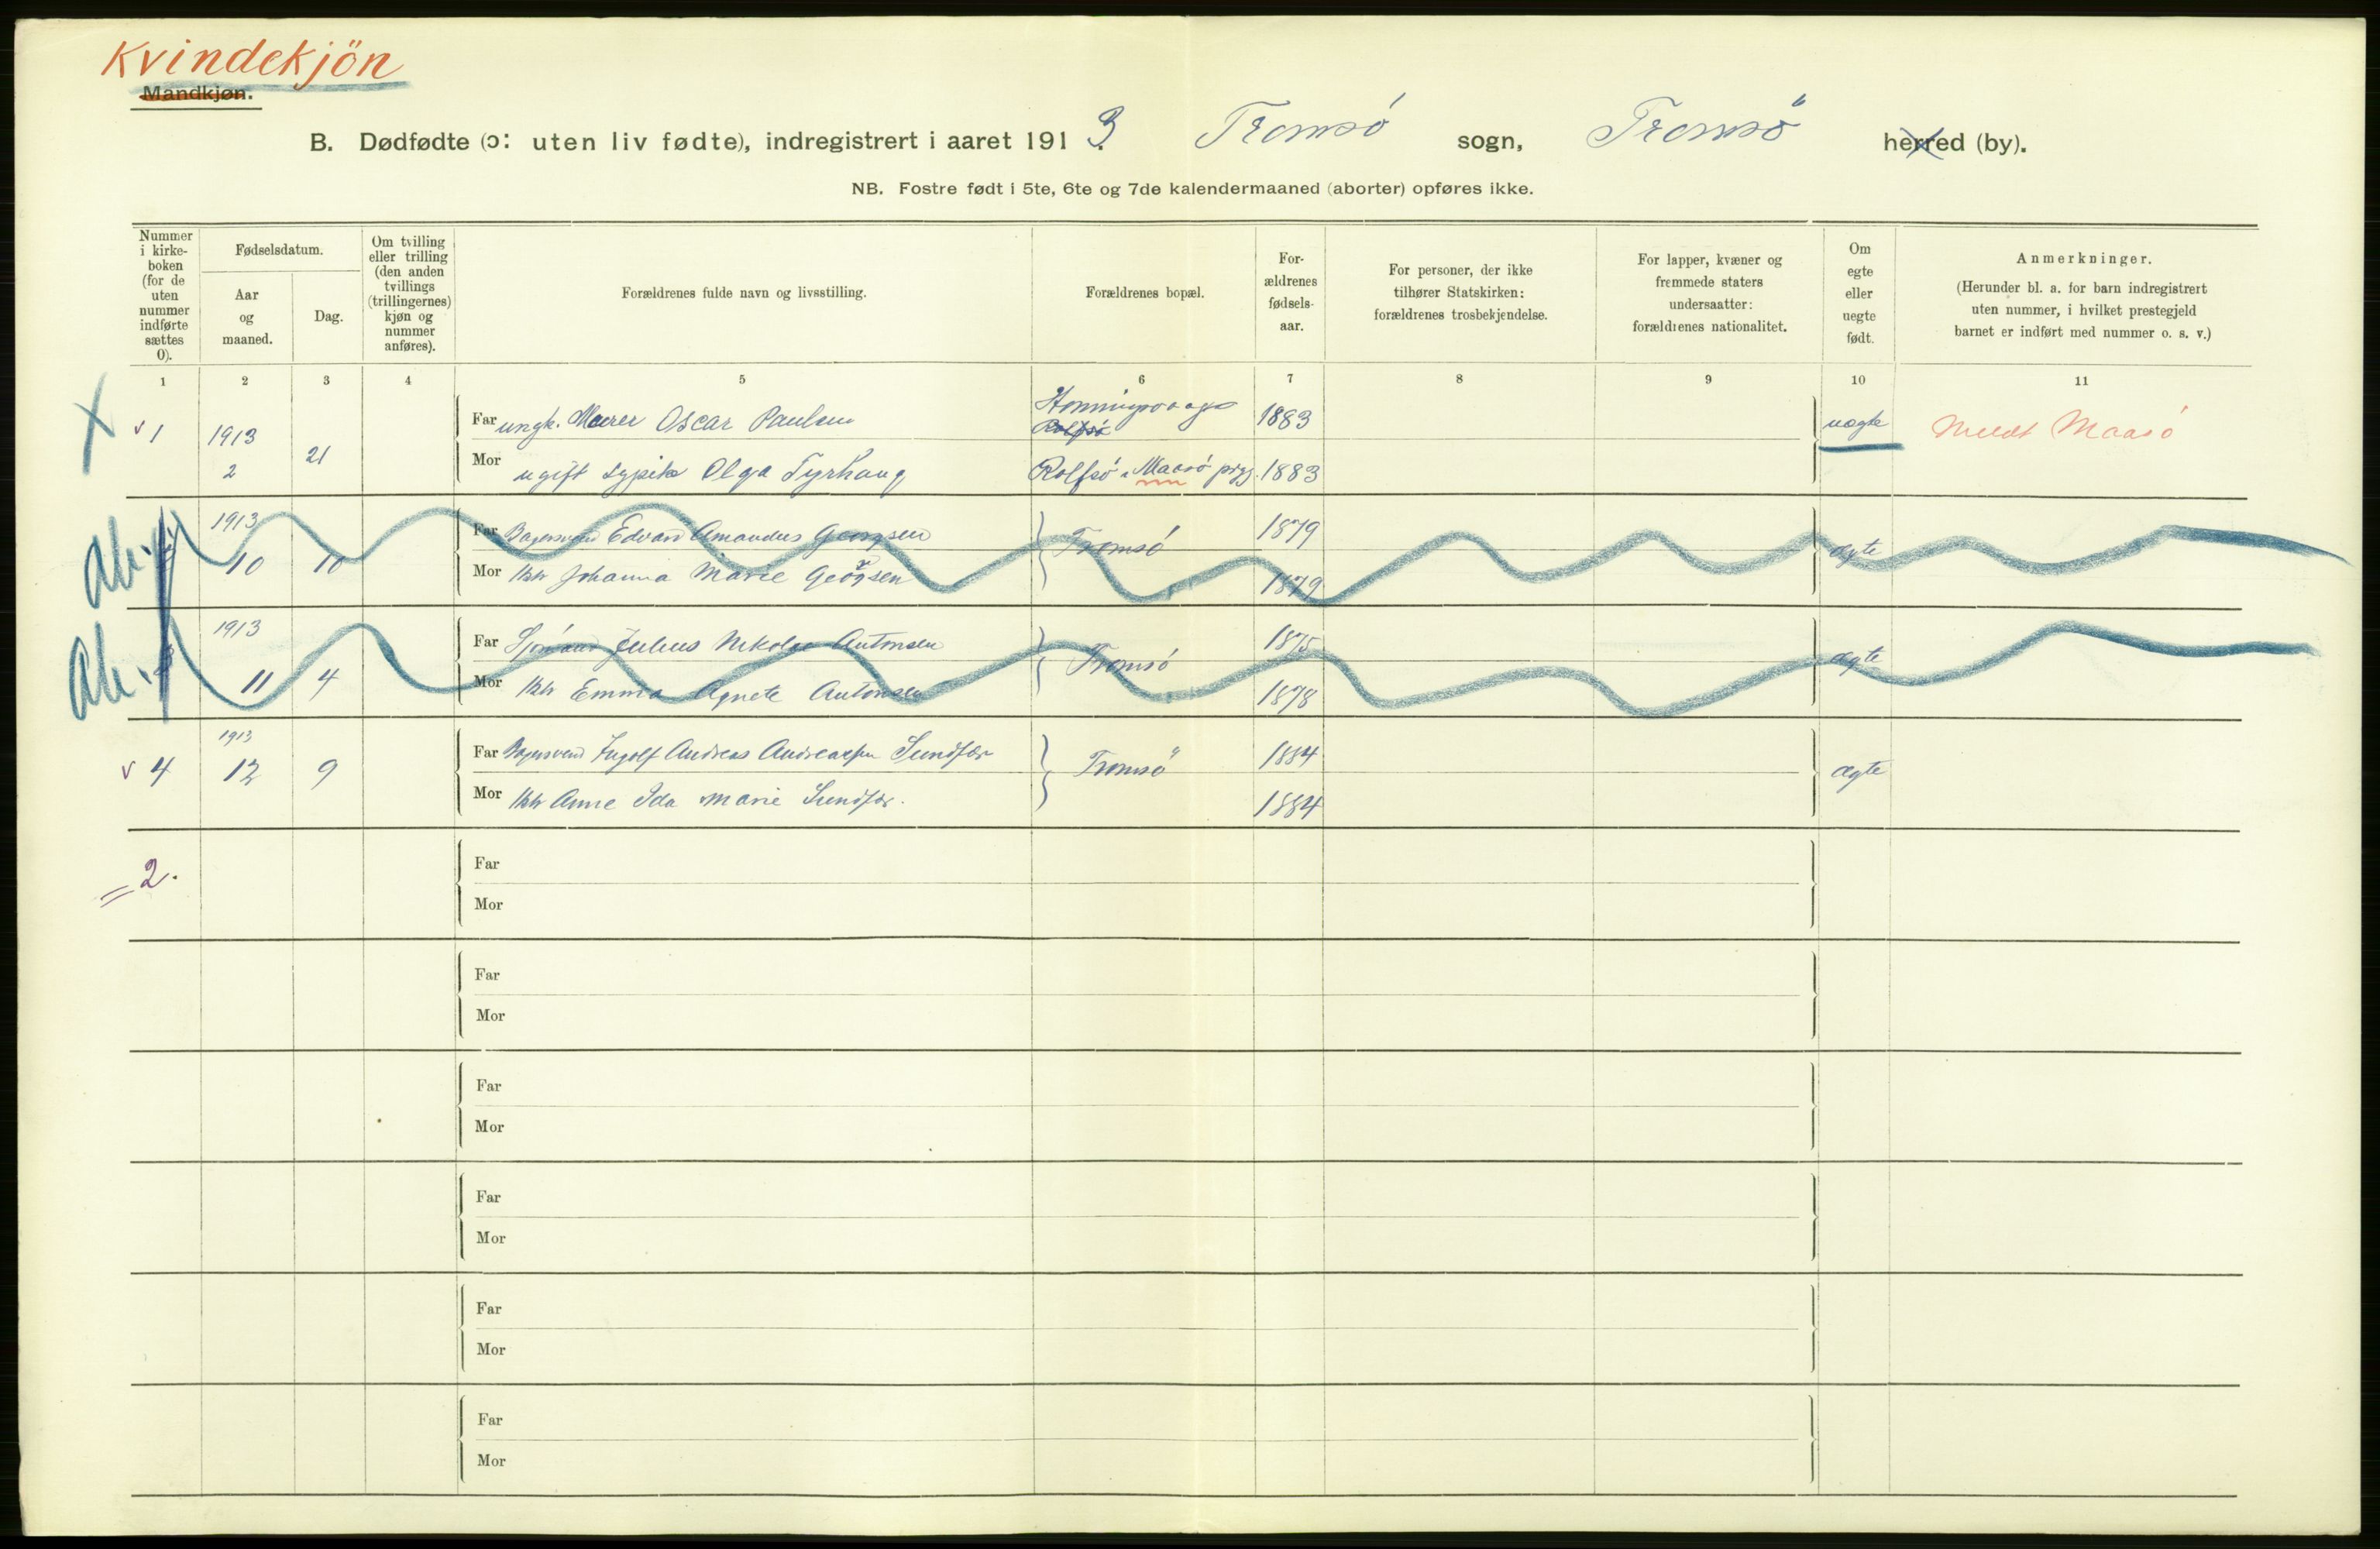 Kvindekjön
Mandkjøn.
B. Dødfødte (ɔ: uten liv fødte), indregistrert i aaret 1913. Tromsö sogn, Tromsö herred (by).
NB. Fostre født i 5te, 6te og 7de kalendermaaned (aborter) opføres ikke.
Nummer i kirke- boken (for de uten nummer indførte sættes 0).
Fødselsdatum.
Aar og maaned.
Dag.
Om tvilling eller trilling (den anden tvillings (trillingernes) kjøn og nummer anføres).
Forældrenes fulde navn og livsstilling.
Forældrenes bopæl.
For- ældrenes fødsels- aar.
For personer, der ikke tilhører Statskirken: forældrenes trosbekjendelse.
For lapper, kvæner og fremmede staters undersaatter: forældrenes nationalitet.
Om egte eller uegte født.
Anmerkninger.
(Herunder bl. a. for barn indregistrert uten nummer, i hvilket prestegjeld barnet er indført med nummer o. s. v.)
1 2 3 4 5 6 7 8 9 10 11
X v 1 1913 2 21
Far ungk. Murer Oscar Paulsen Honningsvaag Rolfsö 1883 uegte Meldt Maasö
Mor ugift sypike Olga Tyrhaug Rolfsö i Maasö prgj. 1883
1913 10 10
Far Bagersvend Edvard Amandus Georgsen Tromsö 1879 ægte
Mor Johanna Marie Georgsen 1879
1913 11 4
Far Sjömand Julius Nikolai Antonsen Tromsö 1875 ægte
Mor Emma Agnete Antonsen 1878
v 4 1913 12 9
Far Bagersvend Ingolf Andreas Andreassen Sundfær Tromsö 1884 ægte
Mor Anne Ida Marie Sundfær. 1884
= 2.
Far
Mor
Far
Mor
Far
Mor
Far
Mor
Far
Mor
Far
Mor